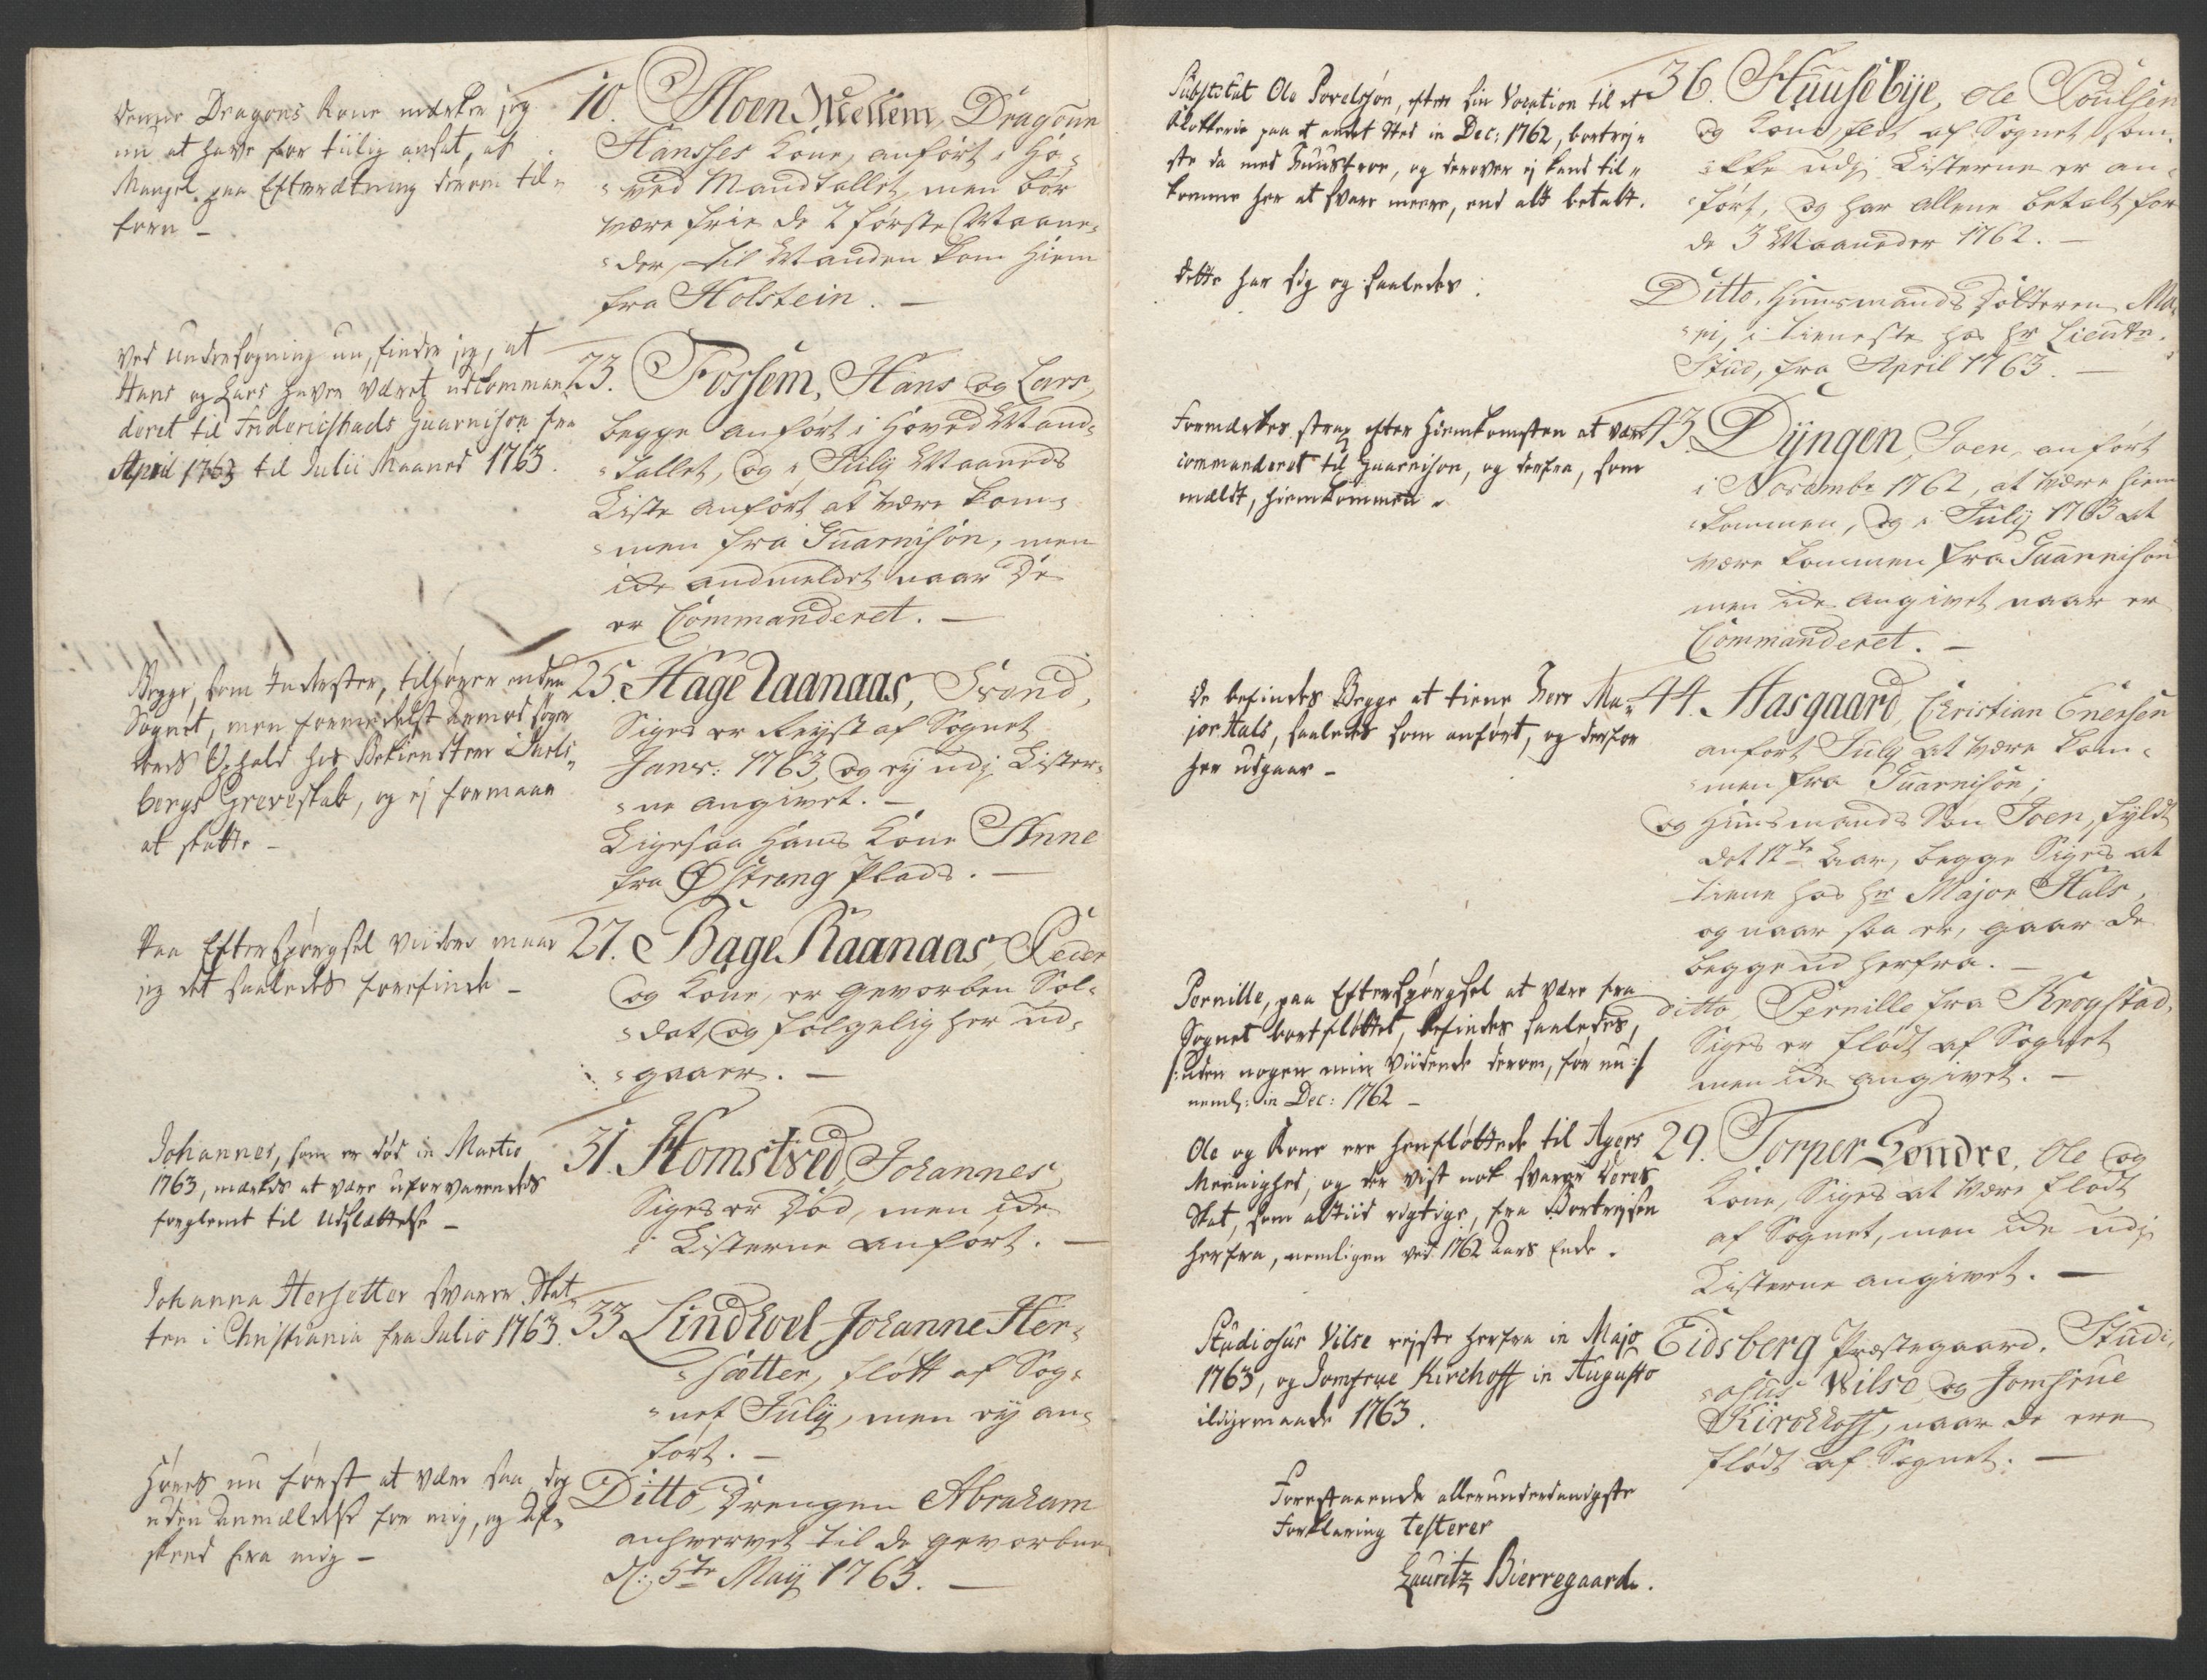 denne Dragons Kone mærker jeg
nu at have for tiilig ansat, af
Mangel paa Efterrætning derom til-
forn -
10. Hoen Mellem, Dragoun
Hansses Kone, anført i Ho-
ved Mandtallet, men bør
være frie de 2 første Maane-
der, til Manden kom hiem
fra Holstein. -
Ved Undersøgning nu, finder jeg, at
Hans og Lars haver været udcomman-
deret til Friderichstads Guarnison fra
April 1763 til Julii Maaned 1763.
23. Fossem, Hans og Lars,
begge anført i Hoved Mand-
tallet, og i July Maaneds
Liste anført at være kom-
men fra Guarnison, men
icke andmeldet naar De
er Commanderet. -
Begge, som Inderster, tilhører endnu
Sognet, men formedelst
Ophold hos Bekiendtere i Jarls-
bergs Grevskab, og ej formaar
at skatte -
25. Hage Raanaas, Trond,
Siges er Reyst af Sognet
Janr: 1763, og ey udj Lister-
ne angivet. -
Ligesaa hans Kone Anne
fra Østreng Plads. -
Paa Efterspørgsel viidere maae
jeg det saaledes forefinde -
27. Bage Raanaas Peder
og Kone, er gevorben Sol-
dat, og følgelig her ud-
gaaer. -
Johannes, som er død in Martio
1763, mærkes at være uforvarendes
forglemt til Udslættelse -
31. Homstved, Johannes,
Siges er Død, men icke
i Listerne anført. -
Johanna Hersetter svarer Skat-
ten i Christiania fra Julio 1763.
33 Lindhoel Johanne Her-
sætter, fløtt af Sog-
net July, men ey an-
ført. -
Høres nu først at være saa, dog
uden Anmældelse for mig, og Af-
skeed fra mig -
Ditto, Drengen Abraham
anhvervet til de gevorbne
d: 5te Maij 1763. -
Substitut Ole Povelsøn, efter sin Vocation til et
Klokkerie paa et andet Sted in Dec: 1762, bortrej-
ste da med Huustroe, og derover ej kand til-
komme her at svare meere, end alt betalt.
36. Huusebye, Ole Poulsen
og Kone flot af Sognet som
ikke udj Listerne er an-
ført, og har allene betalt for
de 3 Maaneder 1762. -
dette har sig og saaledes.
Ditto, Huusmands Dotteren Ma-
ri, i tieneste hos hr Lieutn.
Stud, fra April 1763. -
Formærkes strax efter Hiemkomsten at være
commanderet til Guarnison, og derfra, som
meldt, hiemkommen.
43. Dyngen, Joen, anført
i Novembr 1762, at være hiem
kommen, og i July 1763 at
være kommen fra Guarnison
men icke angivet naar er
Commanderet. -
De befindes Begge at tiene Herr Ma-
jor Hals, saaledes som anført, og derfor
her udgaar -
44. Hasgaard, Christian Enersen
anført July at være kom-
men fra Guarnison;
og Huusmands Søn Joen, fyldt
det 12te Aar, begge Siges at
tiene hos hr Major Hals,
og naar saa er, gaar de
begge ud herfra. -
Pernille, paa Efterspørgsel at være fra
Sognet bortfløttet, befindes saaledes,
/: uden nogen min Viidende derom, før nu :/
neml: in Dec: 1762 -
ditto, Pernille fra Krogstad
Siges er flødt af Sognet
men icke angivet. -
Ole og Kone ere henfløttede til Agers
Meenighed, og der vist nok svarer deres
Skat, som altiid rigtige, fra Bortrejsen
herfra, nemligen ved 1762 Aars Ende.
29. Torper Søndre, Ole og
Kone, Siges at være flødt
af Sognet, men icke udj
Listerne angivet. -
Studiosus Vilse rejste herfra in Majo
1763, og Jomfrue Kirchoff in Augusto
iligemaade 1763.
Eidsberg Præstegaard, Studi-
osus Wilse og Jomfrue
Kirchhoff, naar de ere
flødt af Sognet. -
Forestaaende allerunderdanigste
Forklaring testerer
Lauritz Bierregaard.